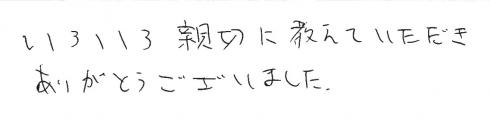 いろいろ親切に教えていただき
ありがとうございました.